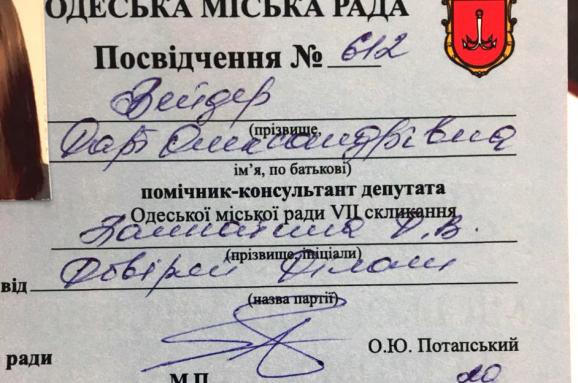 ОДЕСЬКА МІСЬКА РАДА
Посвідчення № 612
Зейдер
(прізвище,
Дар'я Олександрівна
ім’я, по батькові)
помічник-консультант депутата
Одеської міської ради VII скликання
Д.В.
(прізвище, ініціали)
від Довіряй Ділам
(назва партії)
О.Ю. Потапський
ради
М.П.
20